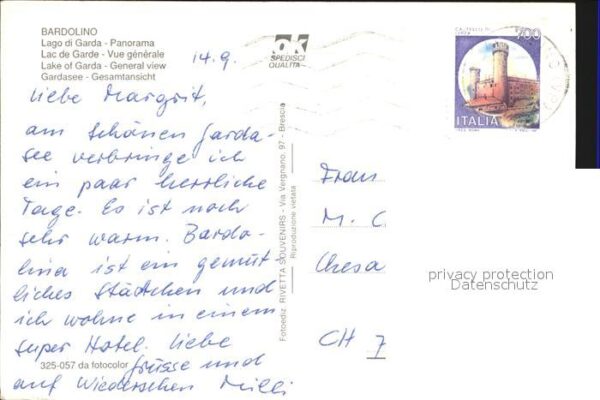 BARDOLINO
Lago di Garda - Panorama
Lac de Garde - Vue générale
Lake of Garda - General view
Gardasee - Gesamtansicht
14.9.
OK
SPEDISCI
QUALITA'
700
ITALIA
Liebe Margrit,
am schönen Garda-
see verbringe ich
ein paar herrliche
Tage. Es ist noch
sehr warm. Bardo-
lina ist ein gemüt-
liches Städtchen und
ich wohne in einem
super Hotel. Liebe
Grüsse und
auf Wiedersehen Milli
325-057 da fotocolor
Fotoediz. RIVETTA SOUVENIRS - Via Vergnano, 97 - Brescia
Riproduzione vietata
Frau
M. C
Chesa
CH 7
privacy protection
Datenschutz